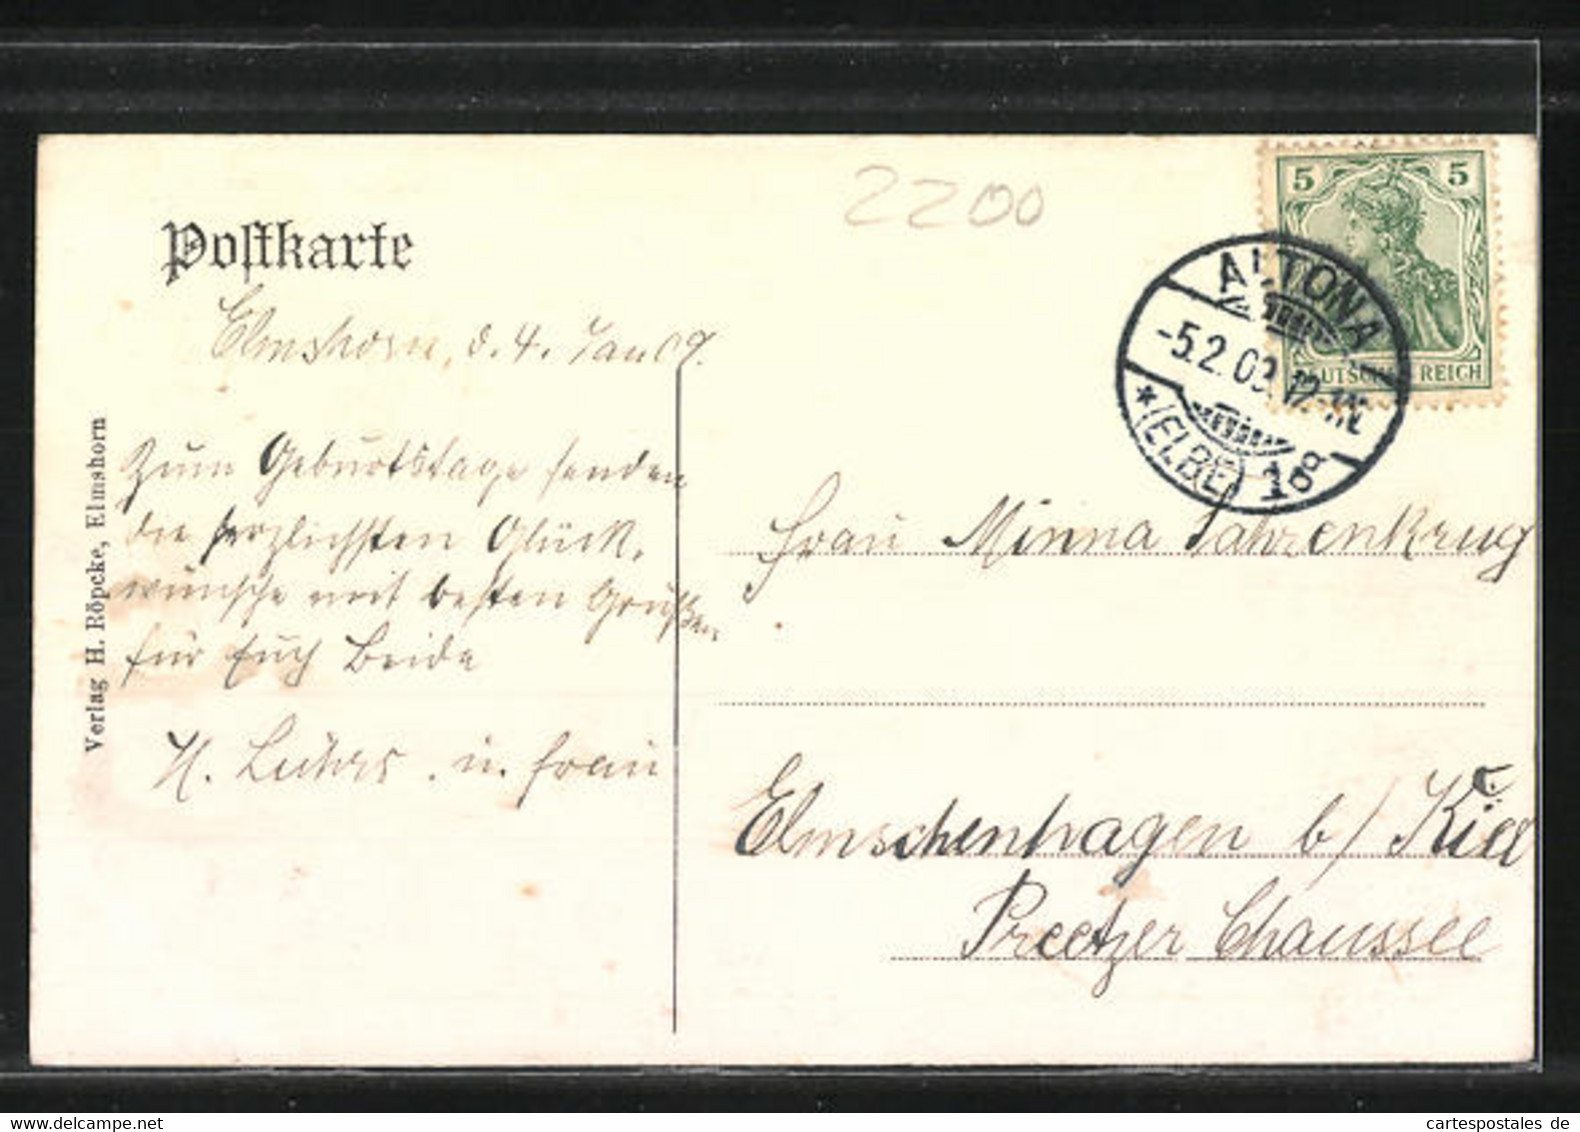 2200
Postkarte
5 5
DEUTSCHES REICH
ALTONA
-5.2.09. 12-1N.
* (ELBE) 1 g
Elmshorn, d. 4. Jan 09.
Zum Geburtstage senden
die herzlichsten Glück,
wünsche mit besten Grüßen
für Euch Beide
H. Lührs. u. Frau
Frau Minna Fahrenkrug
Elmschenhagen b/ Kiel
Preetzer Chaussee
Verlag H. Röpcke, Elmshorn
cartespostales de